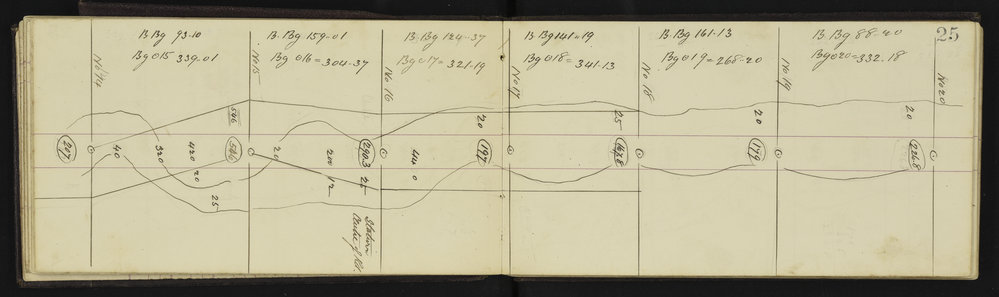 25
B Bg 93-10
Bg 015 339-01
B. Bg 159-01
Bg 016 = 304-37
B. Bg 124-37
Bg 017 = 321-19
B Bg 141-19
Bg 018 = 341-13
B Bg 161-13
Bg 019 = 268-20
B Bg 88-20
Bg 020 = 332-18
No 14
No 15
No 16
No 17
No 18
No 19
No 20
546
207
40
320
420
20
25
546
20
200
12
290.3
25
44
0
20
197
25
167.8
20
179
20
226.8
Station
Centre of Rd.